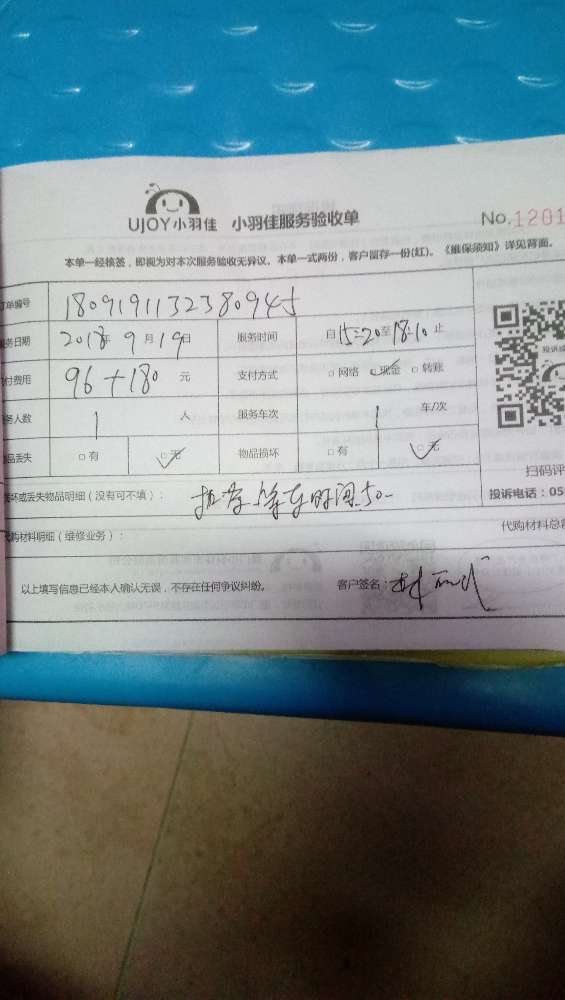 UJOY小羽佳 小羽佳服务验收单 No.1201
本单一经核签，即视为对本次服务验收无异议，本单一式两份，客户留存一份(红)。《维保须知》详见背面。
订单编号 1809191132380945
服务日期 2018年9月19日 服务时间 自15:20至18:10止
付费用 96+180元 支付方式 □网络 □现金 □转账
务人数 1人 服务车次 1车/次
品丢失 □有 □无 物品损坏 □有 □无
扫码评
损坏或丢失物品明细（没有可不填）： 等车时间50 投诉电话：05
代购材料明细（维修业务）： 代购材料总额
以上填写信息已经本人确认无误，不存在任何争议纠纷。 客户签名：